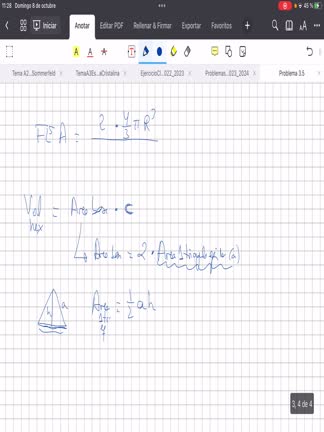 11:28 Domingo 8 de octubre
45 %
Iniciar
Anotar
Editar PDF
Rellenar & Firmar
Exportar
Favoritos
Tema A2...Sommerfeld
TemaA3Es...aCristalina
EjercicioCl...022_2023
Problemas...023_2024
Problema 3.5
2 · 4/3 π R³
FE A =
Vol = Area base · c
hex
↳ Area base = 2 · Area triangulo (a)
h a
Area = 1/2 a h
3, 4 de 4